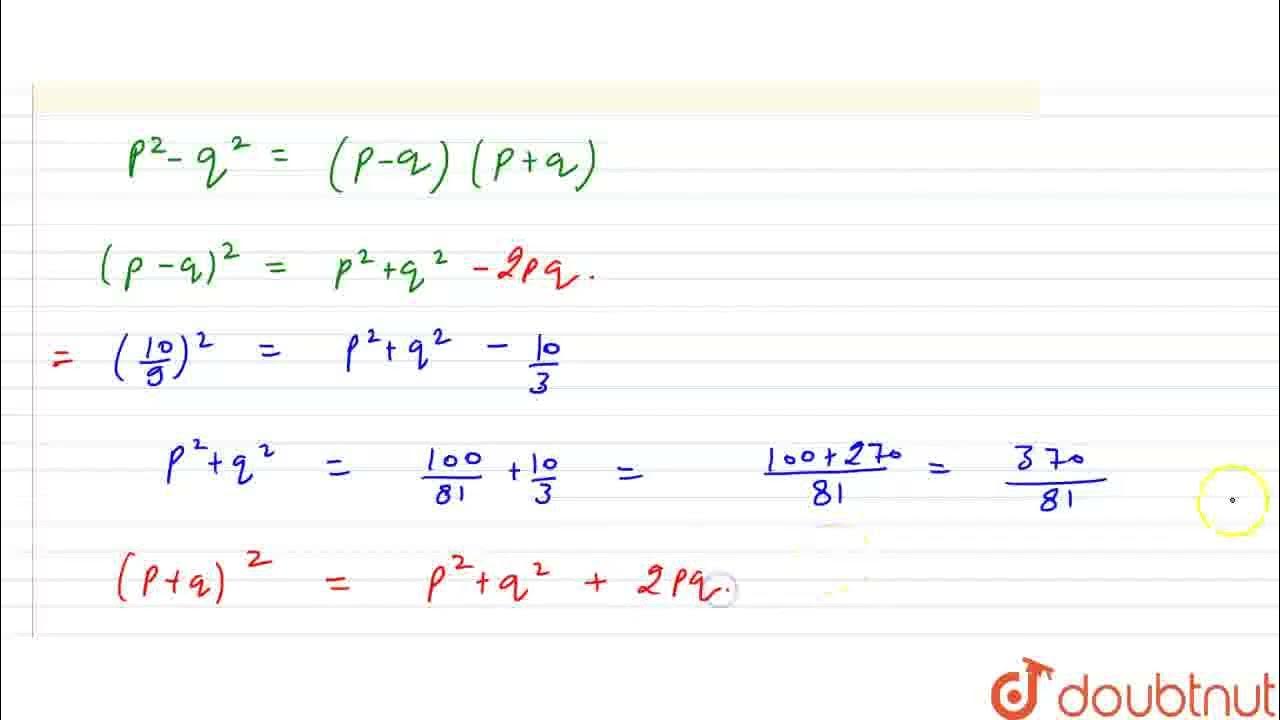 p² - q² = (p-q) (p+q)
(p-q)² = p² + q² - 2pq.
= (10/9)² = p² + q² - 10/3
p² + q² = 100/81 + 10/3 = 100+270/81 = 370/81
(p+q)² = p² + q² + 2pq.
doubtnut